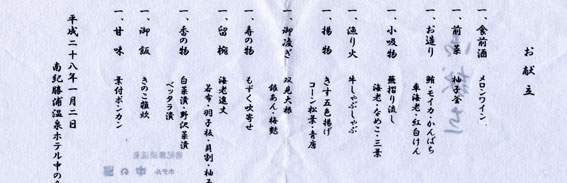 お献立
一、食前酒 メロンワイン
一、前菜 柚子釜
一、お造り 鮪・モイカ・かんぱち
車海老・紅白けん
一、小吸物 蕪摺り流し
海老・なめこ・三葉
一、漁り火 牛しゃぶしゃぶ
一、揚物 きす五色揚げ
コーン松葉・青唐
一、御凌ぎ 双見大根
銀あん・梅麩
一、寿の物 もずく吹寄せ
一、留椀 海老進丈
若布・羽子板・貝割・柚子
一、香の物 白菜漬・野沢菜漬
べッタラ漬
一、御飯 きのこ雑炊
一、甘味 葉付ポンカン
平成二十八年一月二日
南紀勝浦温泉ホテル中の